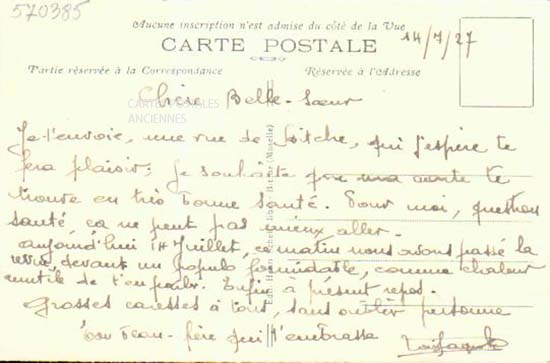 570385
Aucune inscription n'est admise du côté de la Vue
CARTE POSTALE
14/7/27
Partie réservée à la Correspondance
Réservée à l'Adresse
Chère Belle-Sœur
CARTES POSTALES
ANCIENNES
Je t'envoie, une vue de Bitche, qui j'espère te
fera plaisir. Je souhaite que ma carte te
trouve en très bonne santé. Pour moi, question
santé, ça ne peut pas mieux aller.
aujourd'hui 14 Juillet, ce matin nous avons passé la
revue, devant un populo formidable, comme chaleur
inutile de t'en parler. Enfin à présent repos.
Grosses caresses à tous, sans oublier personne
Ton Beau-frère qui t'embrasse
Bitche (Moselle)